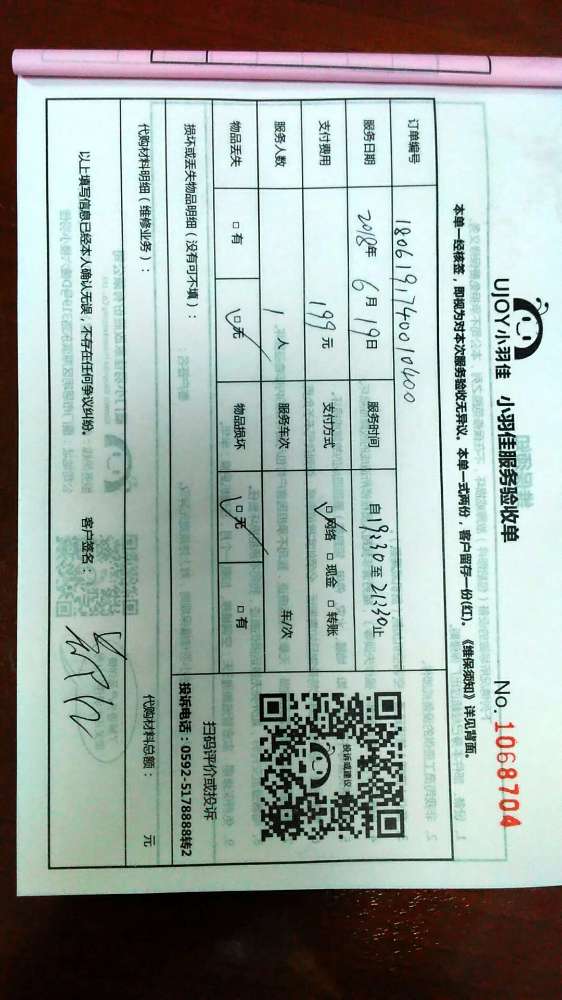 UJOY小羽佳 小羽佳服务验收单
No. 1068704
本单一经核签，即视为对本次服务验收无异议。本单一式两份，客户留存一份(红)。《维保须知》详见背面。
订单编号 1806191740010400
服务日期 2018年 6月 19日 服务时间 自19:30至21:30止
支付费用 199元 支付方式 网络 现金 转账
服务人数 1人 服务车次 车/次
物品丢失 有 无 物品损坏 无 有
投诉或建议
扫码评价或投诉
投诉电话：0592-5178888转2
损坏或丢失物品明细（没有可不填）：
代购材料明细（维修业务）：
代购材料总额： 元
以上填写信息已经本人确认无误，不存在任何争议纠纷。 客户签名：